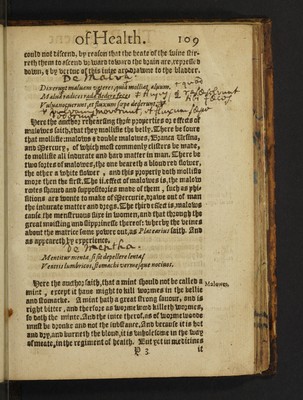 of Health. 109
could not discend, by reason that the heate of the wine stir-
reth them to ascend upward toward the brain are repressed
down, & by vertue of this iuice are drawne to the bladder.
De Malva.
Dixerunt malvam veteres, quia molliat alvum,
Malvae radices rasae dedere feces
Vulvam moverunt, et fluxum saepe dederunt.
Here the author rehearsing three properties or effects of
malowes saith, that they mollifie the belly. There be foure
that mollifie: malowes double malowes, Branca Ursina,
and Mercury, of which most commonly clisters be made,
to mollifie all indurate and hard matter in man. There be
two sortes of malowes, the one beareth a bloud red flower,
the other a white flower, and this properly doth mollifie
more then the first. The ii. effect of malowes is, the malow
rotes shaven and suppositories made of them, such as phi-
sitions are wonte to make of Mercurie, drawe out of man
the indurate matter and dregs. The third effect is, malowes
cause the menstruous flixe in women, and that through the
great moisting and slipprinesse thereof: wherby the veines
about the matrice some powre out, as Platearius saith. And
as appeareth by experience.
De Mentha.
Mentitur menta si sit depellere lenta
Ventris lumbricos, stomachi vermesque nocivos.
Here the author saith, that a mint should not be called a
mint, except it have might to kill wormes in the bellie
and stomacke. A mint hath a great strong savour, and is
right bitter, and therefore as wormewood killeth wormes,
so doth the minte. And the iuice therof, as of wormewoode
must be dronke and not the substance. And because it is hot
and dry, and burneth the bloud, it is unholesome in the way
of meate, in the regiment of health. But yet in medicines
Malowes.
P 3. it